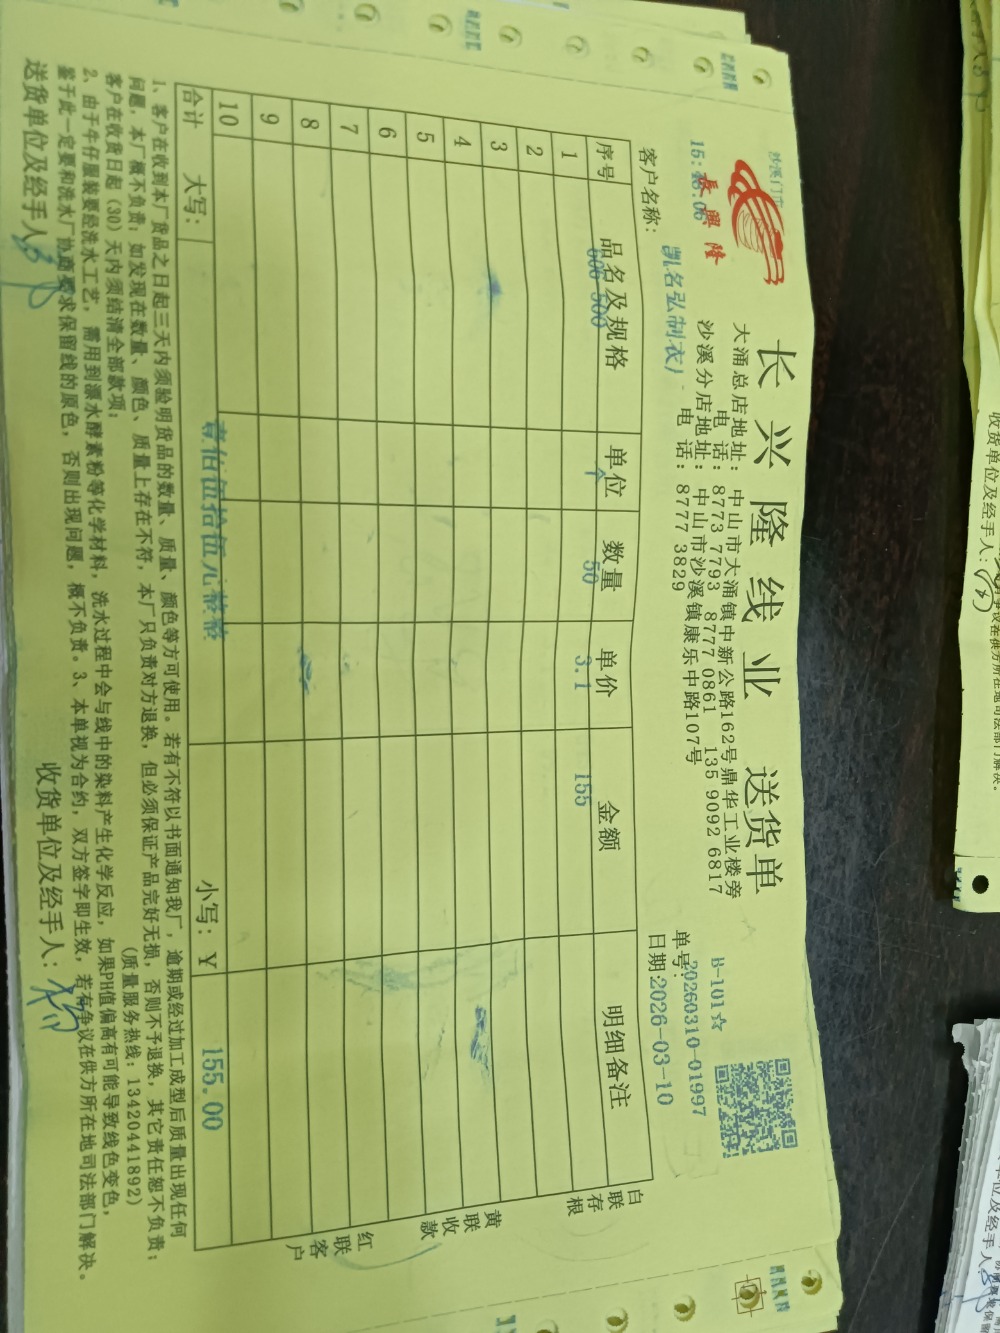 沙溪门市
長興隆
长兴隆线业 送货单
大涌总店地址：中山市大涌镇中新公路162号鼎华工业楼旁
电话：8773 7793 8777 0861 135 9092 6817
沙溪分店地址：中山市沙溪镇康乐中路107号
电话：8777 3829
B-101☆
单号：20260310-01997
日期：2026-03-10
客户名称：凯名弘制衣厂
序号 品名及规格 单位 数量 单价 金额 明细备注
1 606-500 个 50 3.1 155
2
3
4
5
6
7
8
9
10
合计 大写：壹佰伍拾伍元整 小写：￥ 155.00
白联存根
黄联收款
红联客户
1、客户在收到本厂货品之日起三天内须验明货品的数量、质量、颜色等方可使用。若有不符以书面通知我厂，逾期或经过加工成型后质量出现任何
问题，本厂概不负责；如发现在数量、颜色、质量上存在不符，本厂只负责对方退换，但必须保证产品完好无损，否则不予退换，其它责任恕不负责；
客户在收货日起（30）天内须结清全部款项； （质量服务热线：13420441892）
2、由于牛仔服装要经洗水工艺，需用到漂水酵素粉等化学材料，洗水过程中会与线中的染料产生化学反应，如果PH值偏高有可能导致线色变色，
鉴于此一定要和洗水厂协商要求保留线的原色，否则出现问题，概不负责。3、本单视为合约，双方签字即生效，若有争议在供方所在地司法部门解决。
送货单位及经手人： 收货单位及经手人：
收货单位及经手人：